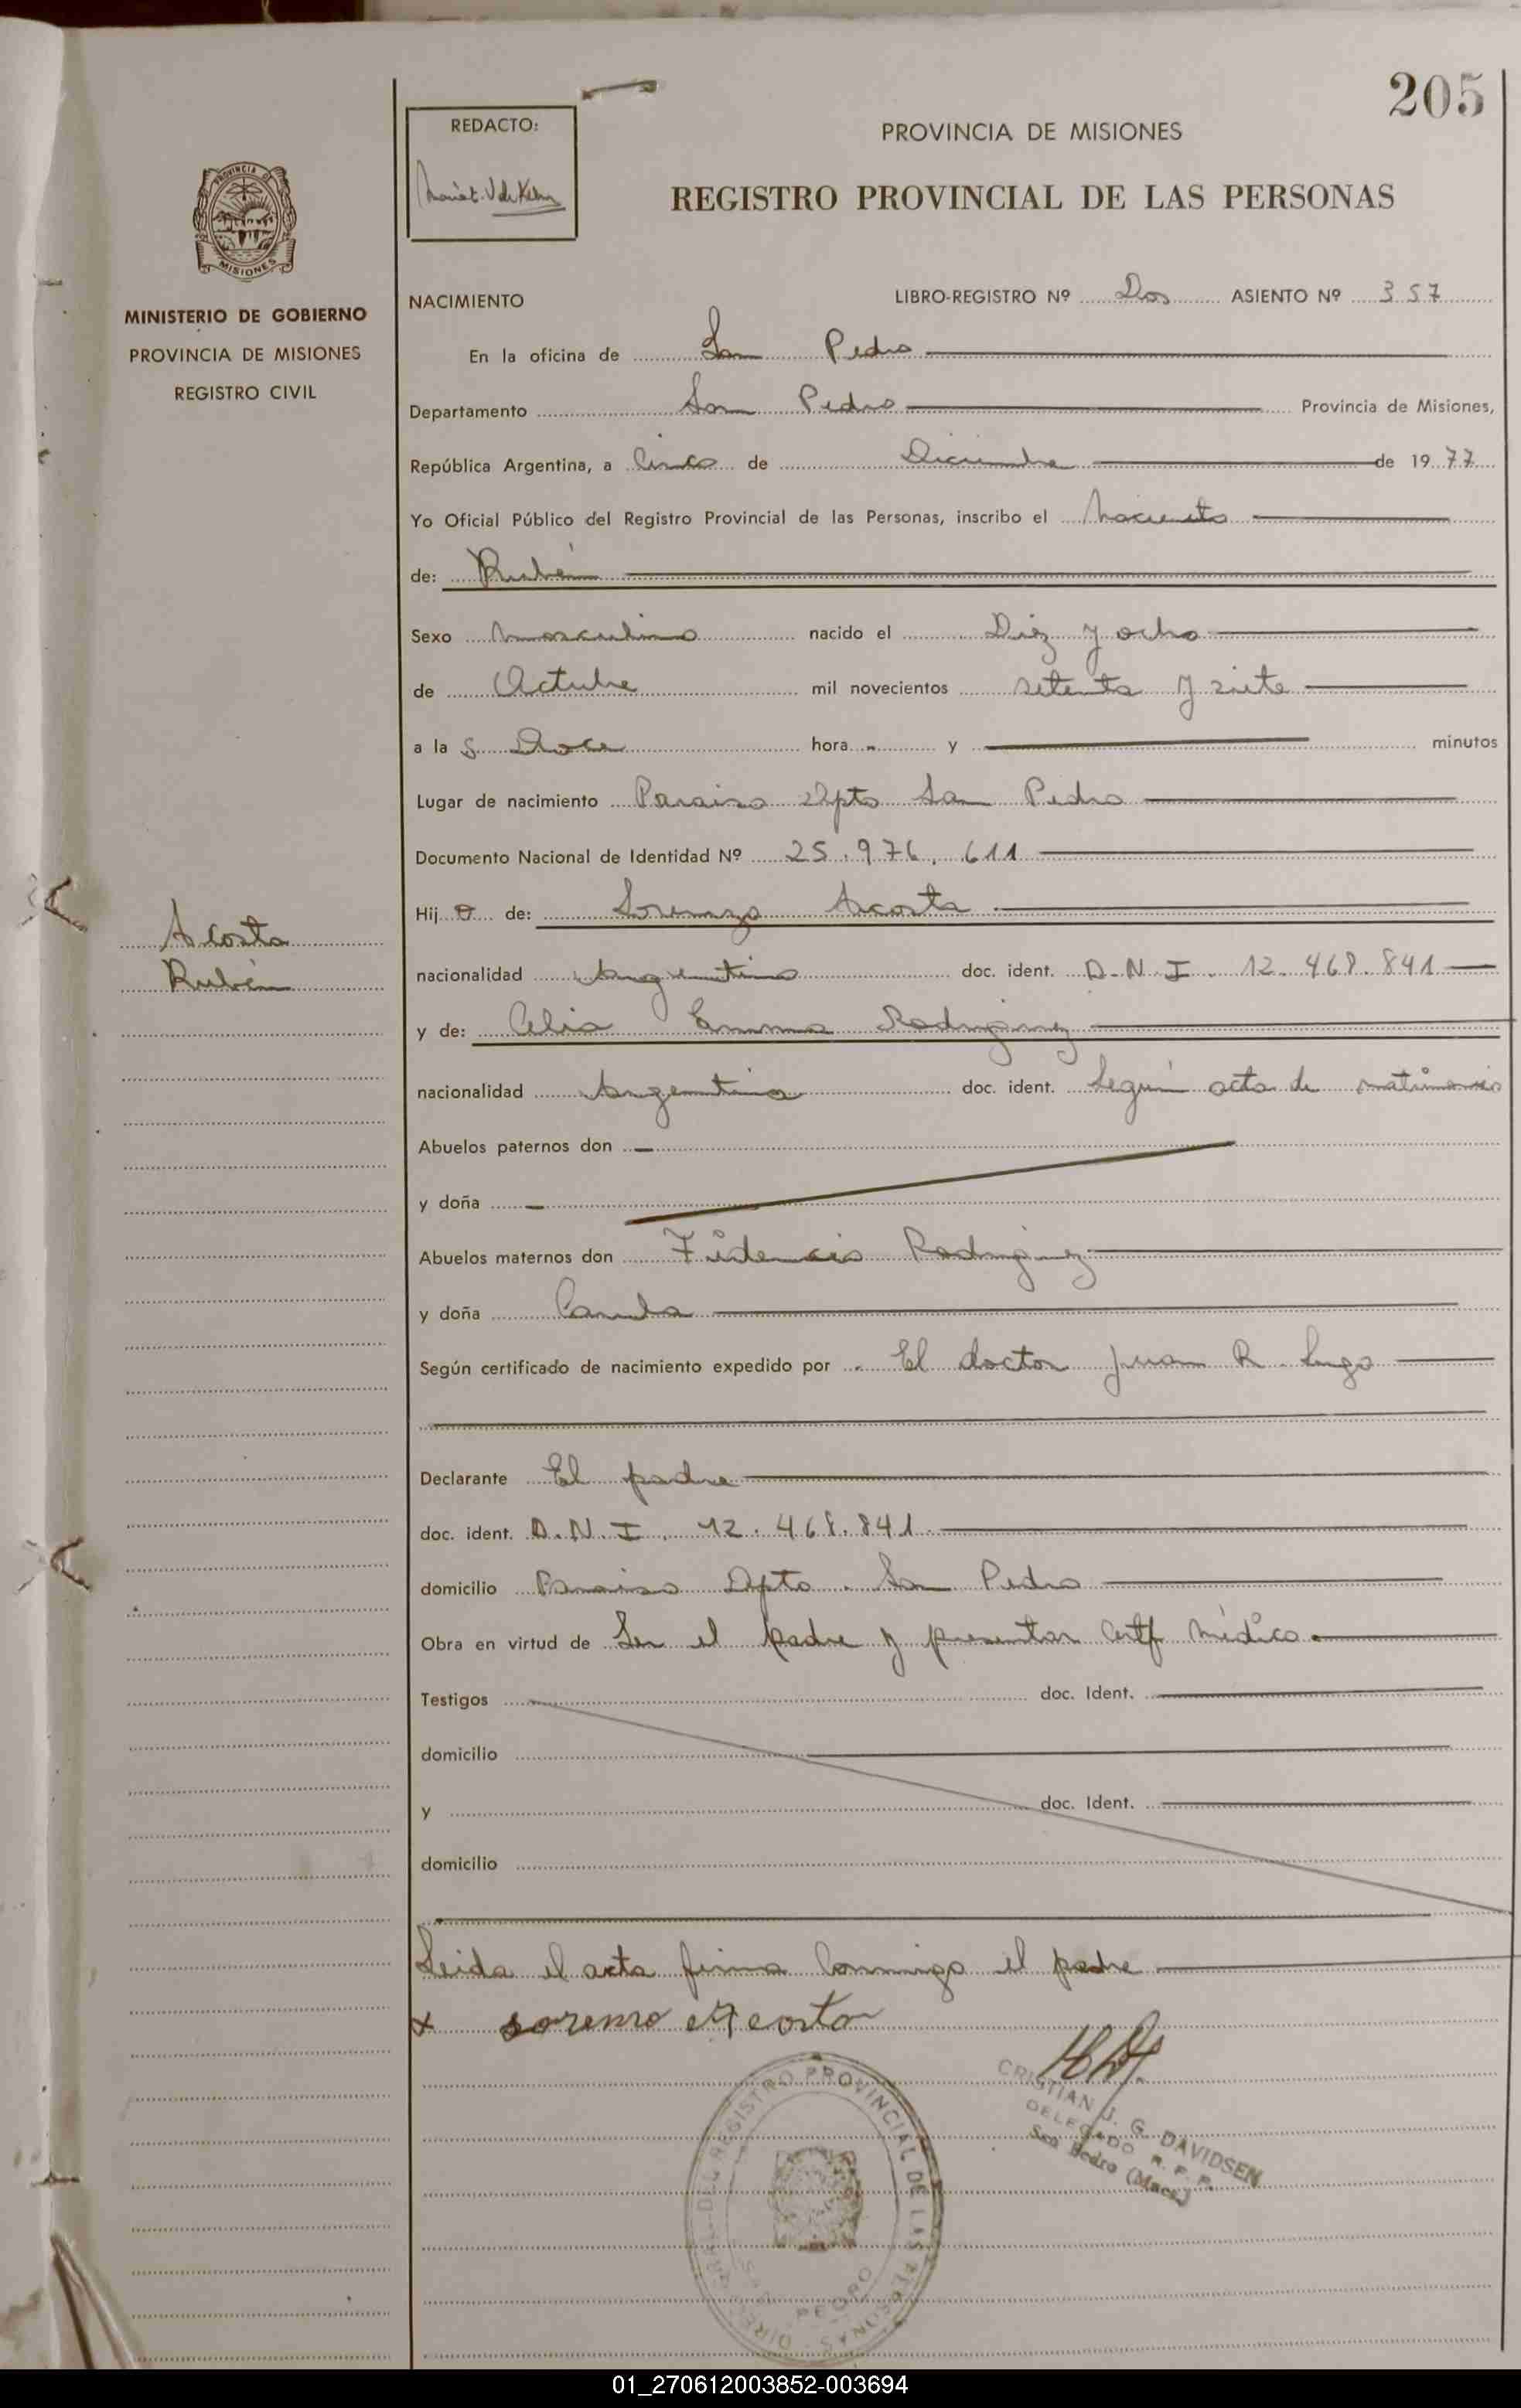 205
REDACTO:
PROVINCIA DE MISIONES
REGISTRO PROVINCIAL DE LAS PERSONAS
PROVINCIA DE
MISIONES
MINISTERIO DE GOBIERNO
PROVINCIA DE MISIONES
REGISTRO CIVIL
NACIMIENTO
LIBRO-REGISTRO Nº Dos ASIENTO Nº 357
En la oficina de San Pedro
Departamento San Pedro Provincia de Misiones,
República Argentina, a Cinco de Diciembre de 1977
Yo Oficial Público del Registro Provincial de las Personas, inscribo el
de: Rubén
Sexo Masculino nacido el Diez y ocho
de Octubre mil novecientos setenta y siete
a la s Doce hora y minutos
Lugar de nacimiento Paraiso Dpto San Pedro
Documento Nacional de Identidad Nº 25.976.611
Hij o de: Lorenzo Acosta
Acosta
Rubén
nacionalidad Argentino doc. ident. D.N.I. 12.468.841
y de: Celia Emma Rodriguez
nacionalidad Argentina doc. ident. Según acta de matrimonio
Abuelos paternos don
y doña
Abuelos maternos don Fidencio Rodriguez
y doña
Según certificado de nacimiento expedido por El doctor Juan R. Lugo
Declarante El padre
doc. ident. D.N.I. 12.468.841
domicilio Paraiso Dpto. San Pedro
Obra en virtud de Ser el padre y presentar Certf Médico.
Testigos doc. Ident.
domicilio
y doc. Ident.
domicilio
Leida el acta firma Conmigo el padre
x sorenso Acosta
CRISTIAN J. G. DAVIDSEN
DELEGADO R. P. P.
San Pedro (Mnes)
DEL REGISTRO PROVINCIAL DE LAS PERSONAS
PEDRO
01_270612003852-003694